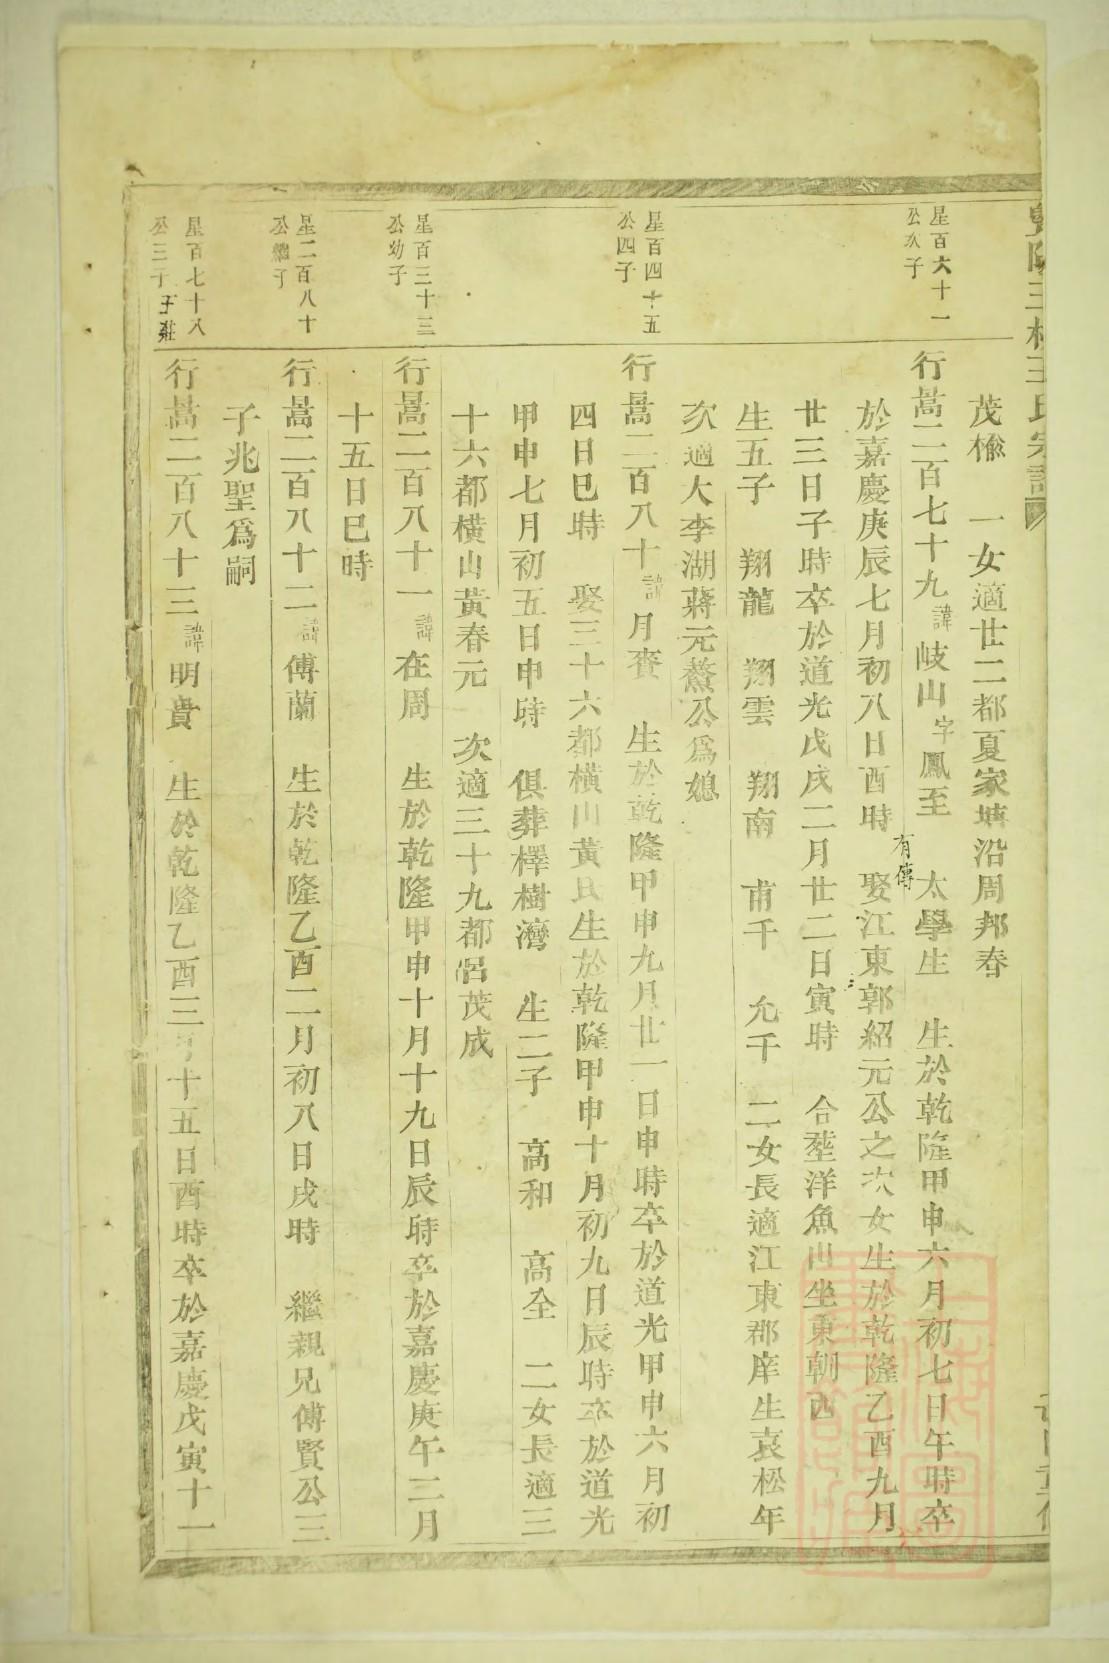 茂檢　一女適廿二都夏家塘沿周邦春
星百六十一
公次子
行暠二百七十九諱岐山字鳳至　太學生　生於乾隆甲申六月初七日午時卒
有傳
於嘉慶庚辰七月初八日酉時　娶江東郭紹元公之次女生於乾隆乙酉九月
廿三日子時卒於道光戊戌二月廿二日寅時　合塟洋魚山坐東朝西
生五子　翔龍　翔雲　翔南　甫千　允千　二女長適江東郡庠生袁松年
次適大李湖蔣元鰲公爲媳
星百四十五
公四子
行暠二百八十諱月賚　生於乾隆甲申九月廿一日申時卒於道光甲申六月初
四日巳時　娶三十六都橫山黃氏生於乾隆甲申十月初九日辰時卒於道光
甲申七月初五日申時　俱葬檡樹灣　生二子　高和　高全　二女長適三
十六都橫山黃春元　次適三十九都呂茂成
星百三十三
公幼子
行暠二百八十一諱在周　生於乾隆甲申十月十九日辰時卒於嘉慶庚午三月
十五日巳時
星二百八十
公繼子
行暠二百八十二諱傅蘭　生於乾隆乙酉二月初八日戌時　繼親兄傅賢公三
子兆聖爲嗣
星百七十八
公三子王莊
行暠二百八十三諱明貴　生於乾隆乙酉三月十五日酉時卒於嘉慶戊寅十一